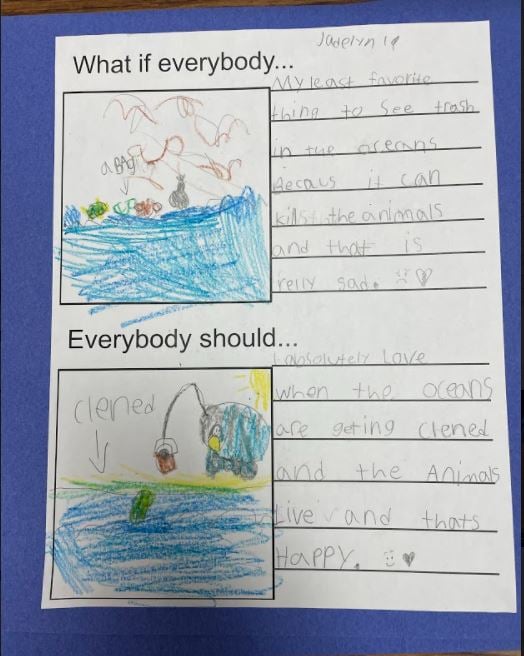 Jadelyn
What if everybody...
My least favorite
thing to see trash
in the oseans
Becaus it can
kills the animals
and that is
relly sad.
a BAG
Everybody should...
I absolutely Love
when the oceans
are geting clened
and the Animals
Live and thats
HAPPY.
clened